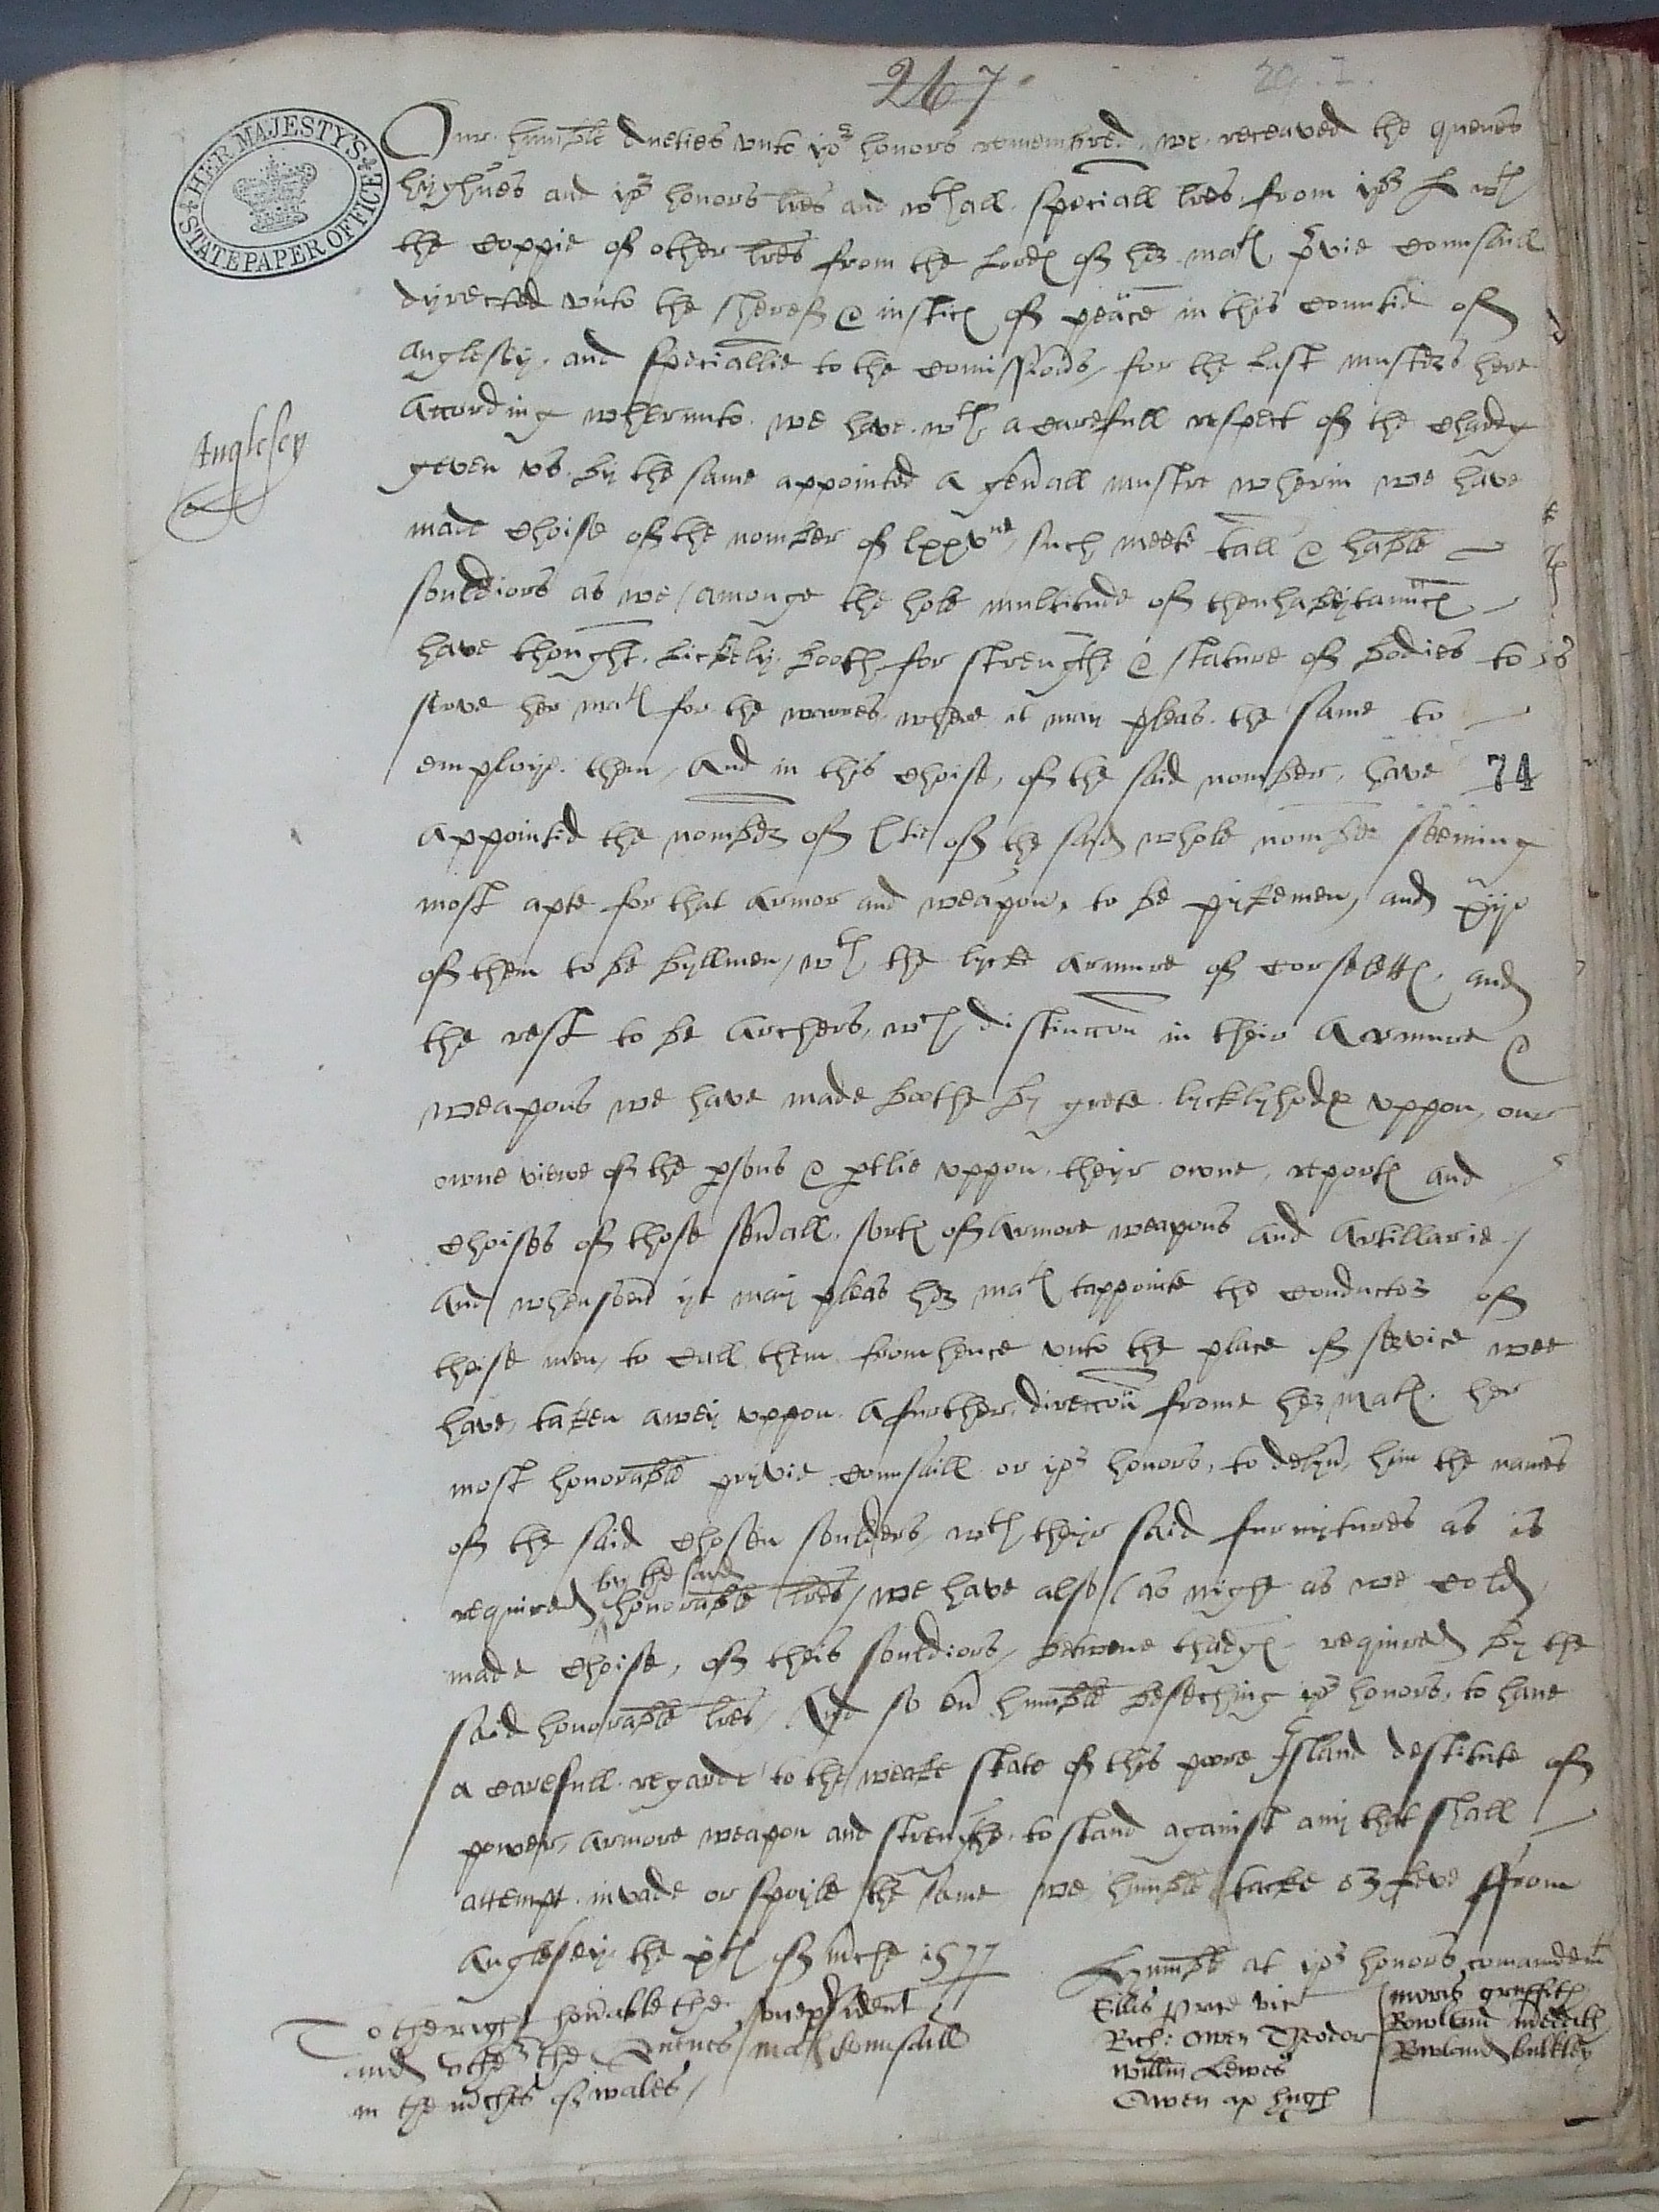 267
HER MAJESTY'S
STATE PAPER OFFICE
Our humble dueties unto yor honors remembred. we receaved the quenes
hyghnes and yor honors lres and wth all speciall lres from yor L wth
the coppie of other lres from the Lordes of her matꝭ privie counsaill
dyrected unto the sheref & iusticꝭ of peace in this countie of
Anglesey. and speciallie to the comissiors, for the last musters here
Anglesey
According wherunto we have wth a carefull respect of the chardg
geven us by the same appointed a genall mustre wherin we have
made choise of the nomber of lxxv such meete tall & hable
souldiors as we / amonge the hole multitude of thenhabytauntꝭ
have thought lickely booth for strengthe & stature of bodies to
serve her matꝭ for the warres where it may pleas the same to
employe them, And in this choise, of the said nomber, have
74
appointed the nomber of ltie of the said whole nomber seeming
most apte for that armor and weapon, to be pykemen, and
of them to be byllmen, wth the lycke armure of corselettꝭ, and
the rest to be Archers, wch distinccon in their Armure &
weapons we have made boothe by grete lycklyhode uppon, our
owne viewe of the psons & ptlie uppon theyr owne, reportꝭ and
choises of those sevall sortꝭ of Armore weapons and Artillarie /
And whensoevr yt may pleas her matꝭ tappointe the conductor of
theise men, to call them from hence unto the place of service wee
have, taken awey uppon a further, direccon frome her matꝭ her
most honorable pryvie counsaill or yor honors, to delyvr him the names
of the said chosen souldiors, wth theyr said furnytures as is
required by the said honorable lres, we have also (as nighe as we cold
made choise, of theis souldiors, betwene thadgꝭ required by the
said honorable lres, And so humble besechinge yor honors, to have
a carefull regarde to the weake state of this poore Island destitute of
power, armore weapon and strengthe to stand against any that shall
attempt invade or spoyle the same we humble tacke or leve ffrom
Anglesey the of mche 1577
Humble at yor honors comaundemt
To the right honable the lord president
and other the Quenes matꝭ Counsaill
in the mches of wales /
Ellis Price vic
Rich: Owen Theodor
Willm Lewes
Owen ap hugh
moris gruffith
Rowland meredith
Rowland bulkley